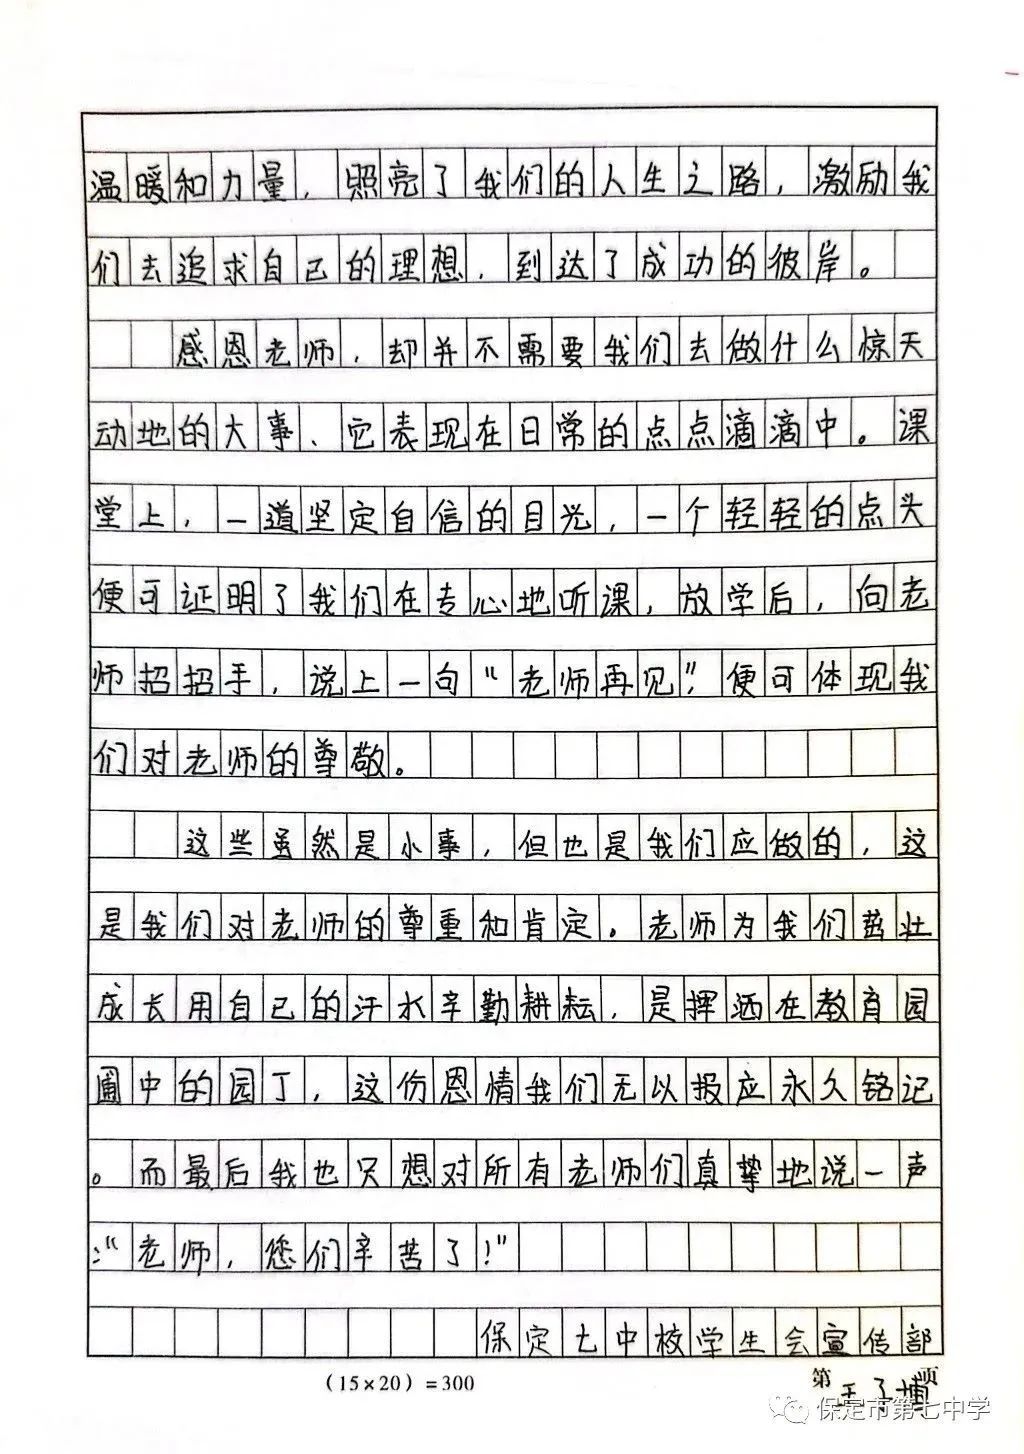 温暖和力量，照亮了我们的人生之路，激励我
们去追求自己的理想，到达了成功的彼岸。
感恩老师，却并不需要我们去做什么惊天
动地的大事、它表现在日常的点点滴滴中。课
堂上，一道坚定自信的目光，一个轻轻的点头
便可证明了我们在专心地听课，放学后，向老
师招招手，说上一句“老师再见”，便可体现我
们对老师的尊敬。
这些虽然是小事，但也是我们应做的，这
是我们对老师的尊重和肯定。老师为我们茁壮
成长用自己的汗水辛勤耕耘，是挥洒在教育园
圃中的园丁，这份恩情我们无以报应永久铭记
。而最后我也只想对所有老师们真挚地说一声
：“老师，您们辛苦了！”
保定七中校学生会宣传部
(15×20)=300
第 页
王子博
保定市第七中学